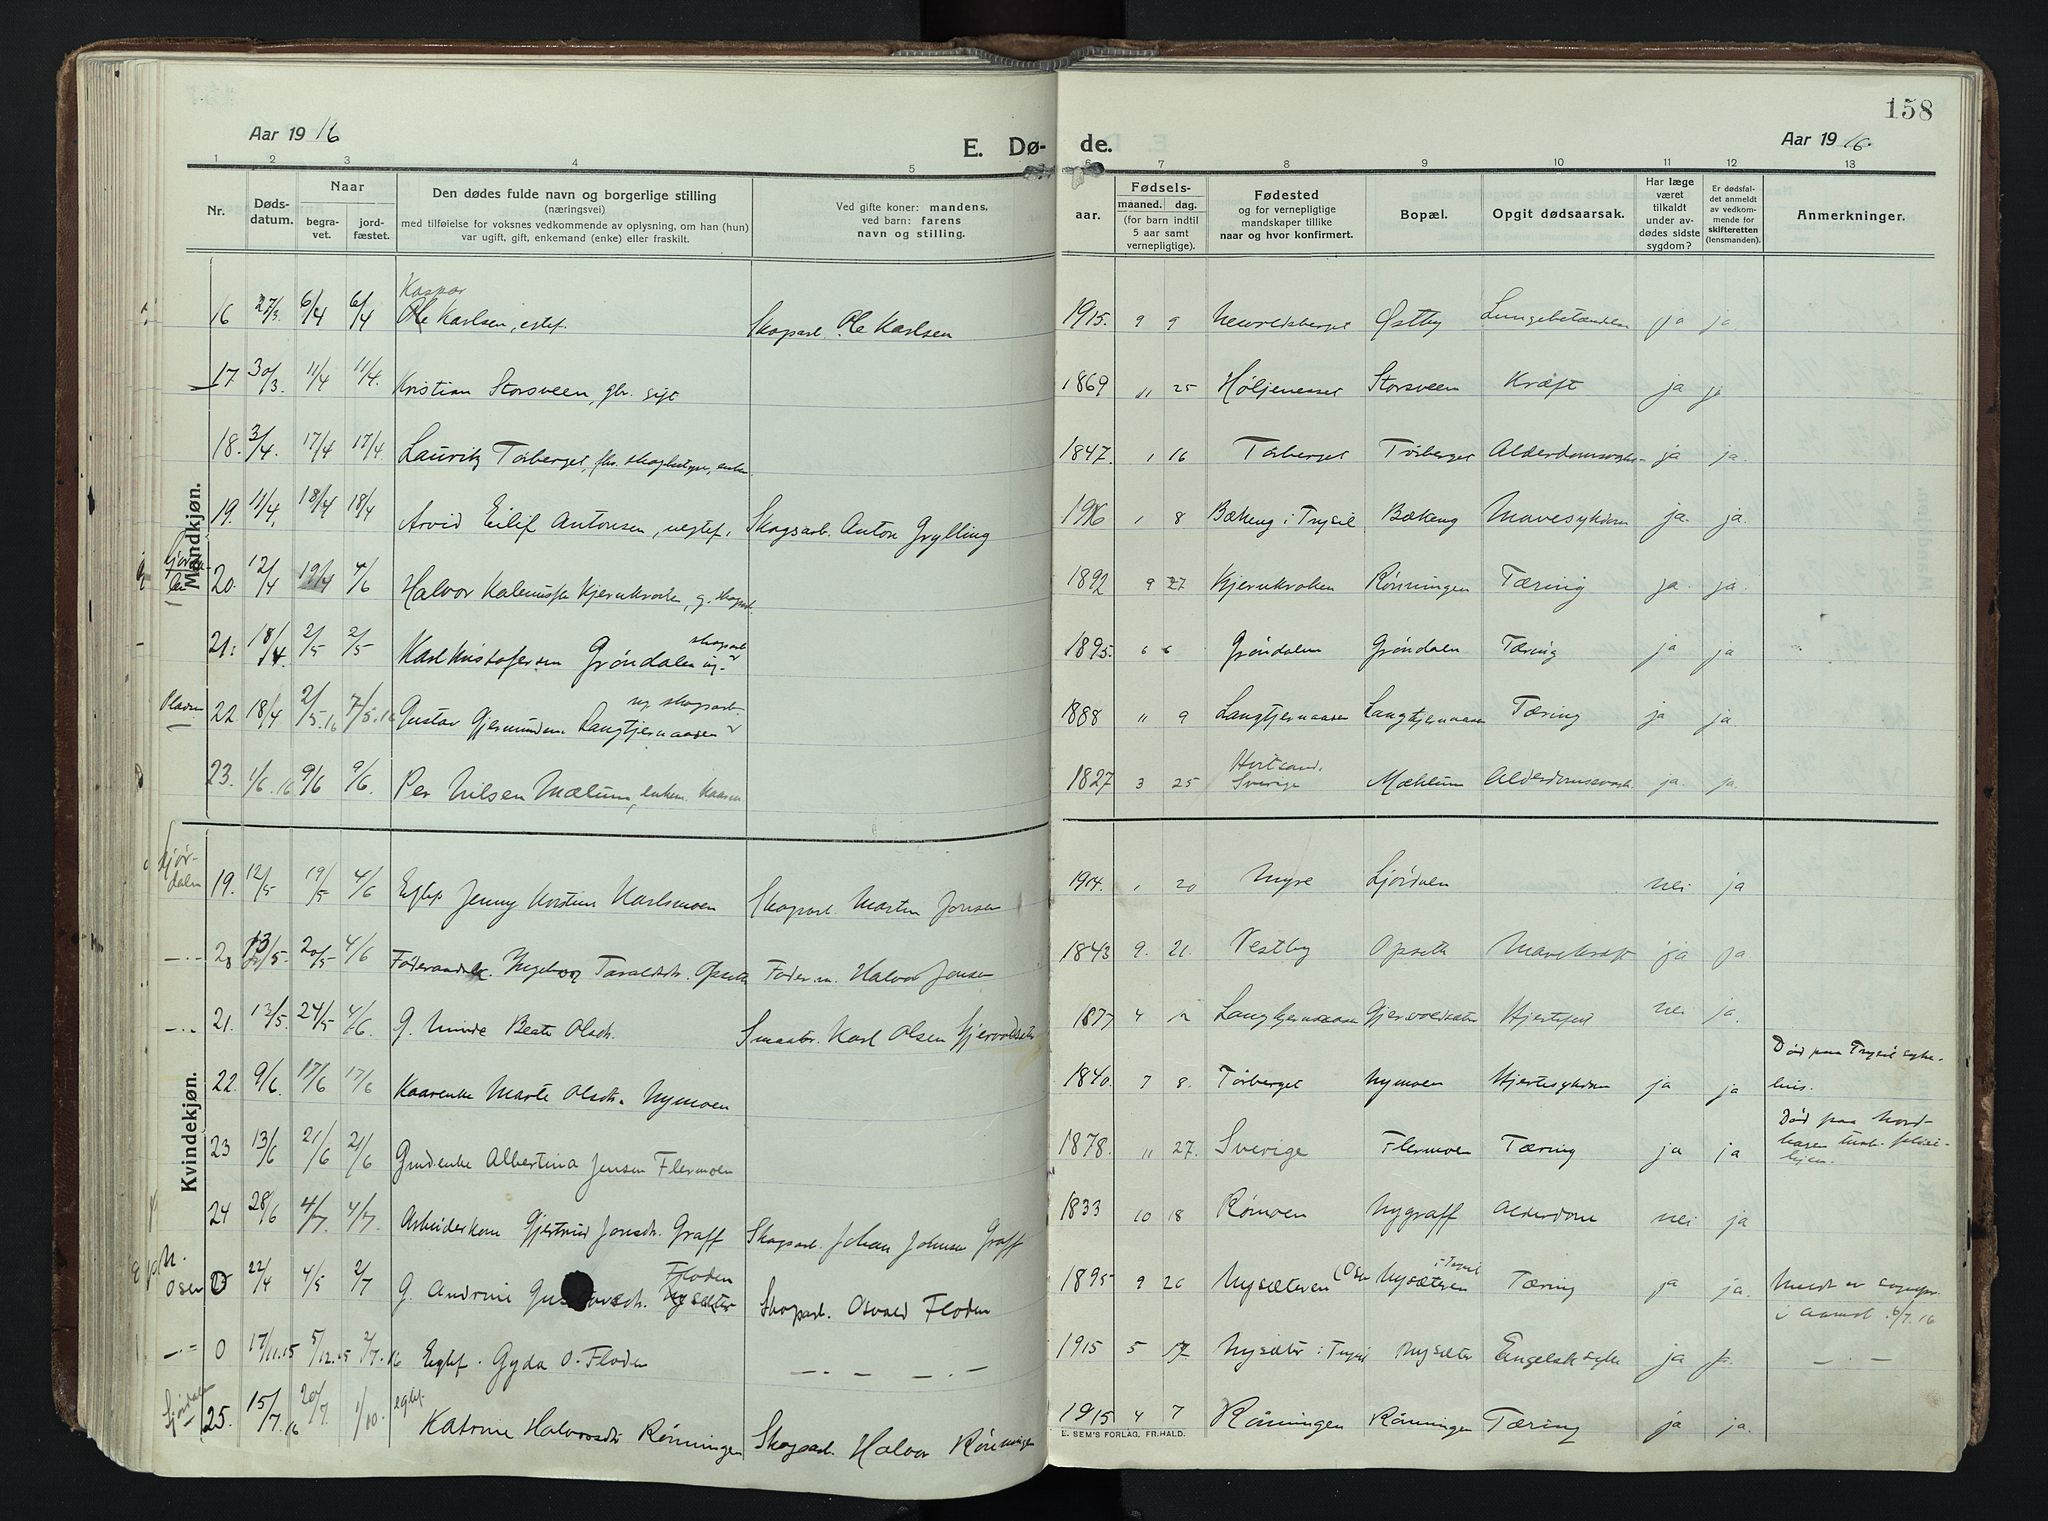 158
Aar 1916
E. Dø-
de.
Aar 1916.
1 2 3 4 5 6 7 8 9 10 11 12 13
Nr.
Døds-
datum.
Naar
begra-
vet.
jord-
fæstet.
Den dødes fulde navn og borgerlige stilling
(næringsvei)
med tilføielse for voksnes vedkommende av oplysning, om han (hun)
var ugift, gift, enkemand (enke) eller fraskilt.
Ved gifte koner: mandens.
ved barn: farens
navn og stilling.
Fødsels-
aar.
maaned.
dag.
(for barn indtil
5 aar samt
vernepligtige).
Fødested
og for vernepligtige
mandskaper tillike
naar og hvor konfirmert.
Bopæl.
Opgit dødsaarsak.
Har læge
været
tilkaldt
under av-
dødes sidste
sygdom?
Er dødsfal-
det anmeldt
av vedkom-
mende for
skifteretten
(lensmanden).
Anmerkninger.
Mandkjøn.
Kaspar
16 27/3 6/4 6/4 Ole Karlsen, egtef. Skogsarb. Ole Karlsen 1915. 9 9 Østby Lungebetændelse ja ja
17 30/3 11/4 11/4. Kristian Storsveen, gbr. gift 1869 11 25 Høljenesset Storsveen Kræft ja ja
18. 3/4. 17/4 17/4. Lauritz Tørberget, enkem. 1847. 1 16 Tørberget Tørberget ja ja.
19. 11/4. 18/4 18/4 Arvid Eilif Antonsen, uegtef. Skogsarb. Anton Grylling 1916 1 8 Bækeng i Trysil Bækeng Mavesykdom ja. ja.
20. 12/4 19/4 4/6 Halvor Kjernkroken, g. skogsarb. 1892 9 27 Kjernkroken Rønningen Tæring ja. ja.
skogsarb
21. 18/4. 2/5 2/5 Karl Kristofersen Grøndalen ug. 1895. 6 6 Grøndalen Grøndalen Tæring ja ja
ug. skogsarb.
22 18/4 2/5.16 7/5.16 Gustav Gjermundsen Langtjernaasen 1888 11 9 Langtjernaasen Langtjernaasen Tæring ja ja.
Sverige
23. 1/6.16 9/6 9/6. Per Nilsen Mælum, enkem. 1827 3 25 Mæhlum ja. ja.
Kvindekjøn.
Ljør-
dalen
19. 12/5 19/5 4/6 Egtef. Jenny Kristine Karlsmoen Skogsarb. Martin Jonsen 1914. 1 20 Myre Ljørdalen nei ja
20 13/5. 20/5 4/6 Føderaadsk. Ingeborg Taraldsdtr. Opseth Føder.m. Halvor Jensen 1843 9. 21. Vestby Opseth Mavekræft ja ja
21. 13/5. 24/5 4/6 G. Beate Olsdtr. Smaabr. Karl Olsen Gjervoldsæter 1877 4 Langtjernaasen Gjervoldsæter Hjertefeil nei ja.
Død paa Trysil syke-
22 9/6. 17/6 17/6 Kaarenke Marte Olsdtr. Nymoen 1840. 7 8. Tørberget Nymoen Hjertesykdom ja ja hus.
Død paa Nord-
23 13/6 21/6 21/6 Albertina Jensen Flermoen 1878. 11 27. Sverige Flermoen Tæring ja ja
hjem.
24 28/6 4/7 4/7. Arbeiderkone Gjertrud Jonsdtr. Graff Skogsarb. Johan Johnsen Graff 1833 10 18 Rømoen Nygraff Alderdom nei ja
N.
Osen
Floden
0 22/4 4/5 2/7 G. Andrine Nysæter Skogsarb. Osvald Floden 1895 9 26 Nysæteren (Osen Nysæteren i Trysil Tæring ja ja.
i Aamot 6/7.16
0 17/11.15 5/12.15 2/7.16 Egtef. Gyda O. Floden 1915 5 17 Nysæter i Trysil Nysæter Engelsk syke ja ja.
Ljørdalen
egtef.
25. 15/7.16 20/7. 1/10. Katrine Halvorsdtr Rønningen Skogsarb. Halvor Rønningen 1915 4 7 Rønningen Rønningen Tæring ja ja.
E. SEM'S FORLAG, FR.HALD.